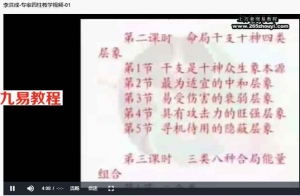 李洪成-专审四柱教学视频-01
十万资源易学教程
www.265shouyi.com
第二课时 命局干支十神四类
层象
第1节 干支是十神众生象本源
第2节 最为适宜的中和层象
第3节 易受伤害的衰弱层象
第4节 具有攻击力的旺强层象
第5节 寻机待用的隐蔽层象
第三课时 三类八种合局能量
组合
九易教程
4:00